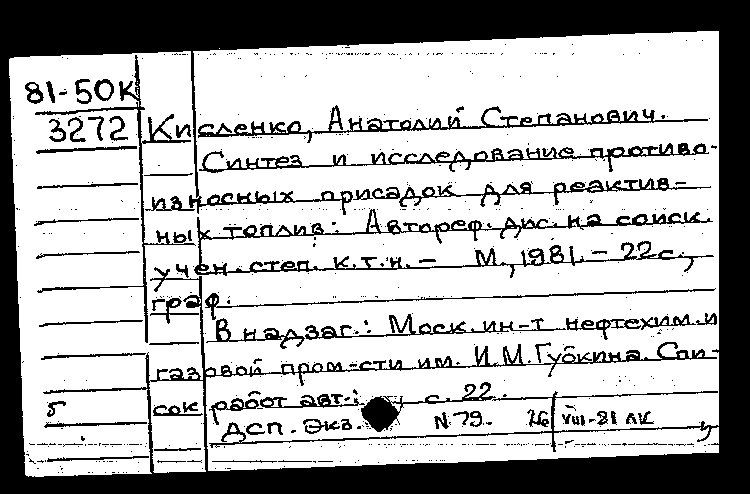 81-50К
3272 Кисленко, Анатолий Степанович.
Синтез и исследование противо-
износных присадок для реактив-
ных топлив: Автореф. дис. на соиск.
учен. степ. к.т.н. – М., 1981. – 22 с.,
граф.
В надзаг.: Моск. ин-т нефтехим. и
газовой пром-сти им. И.М. Губкина. Спи-
сок работ авт.: с. 22.
5
ДСП. Экз. N 79. 26 VIII-81 ЛК